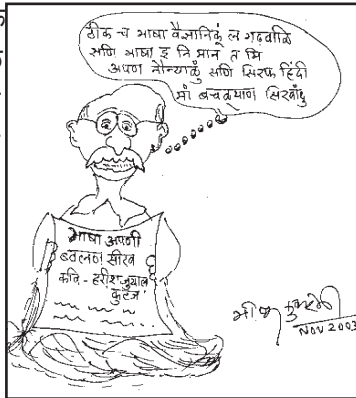 ठीक च भाषा वैज्ञानिकूं ल गढ़वाळि
सणि भाषा इ नि मान त मि
अपण नौन्याळुं सणि सिरफ हिंदी
मां बचळ्याण सिखांदु
भाषा अपणी
बलाण सीख
कवि - हरीश जुयाल
कुटज
NOV 2003